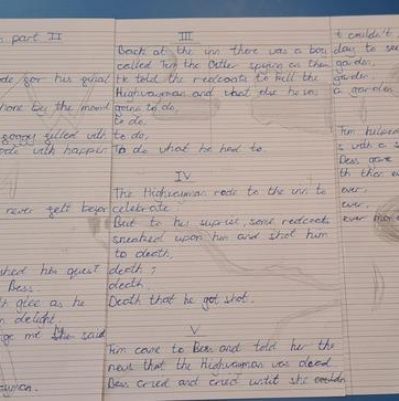 part II
ode for his quest
Alone by the moond
goggy filled with
ode with happin
never felt befor
shed his quest
Bess.
glee as he
delight,
ge me she said
wayman.
III
Back at the inn there was a boy
called Tim the Ostler spying on them
He told the redcoats to kill the
Highwayman and what else he was
going to do,
to do,
to do,
To do what he had to.
IV
The Highwayman rode to the inn to
celebrate
But to his suprise, some redcoats
sneaked upon him and shot him
to death,
death,
death
Death that he got shot.
V
Tim came to Bess and told her the
news that the Highwayman was dead
Bess cried and cried until she couldn
t couldn't
day to see
garden,
garden,
a garden
Tim helped
s with a s
Bess gave
th their e
ever,
ever,
ever more